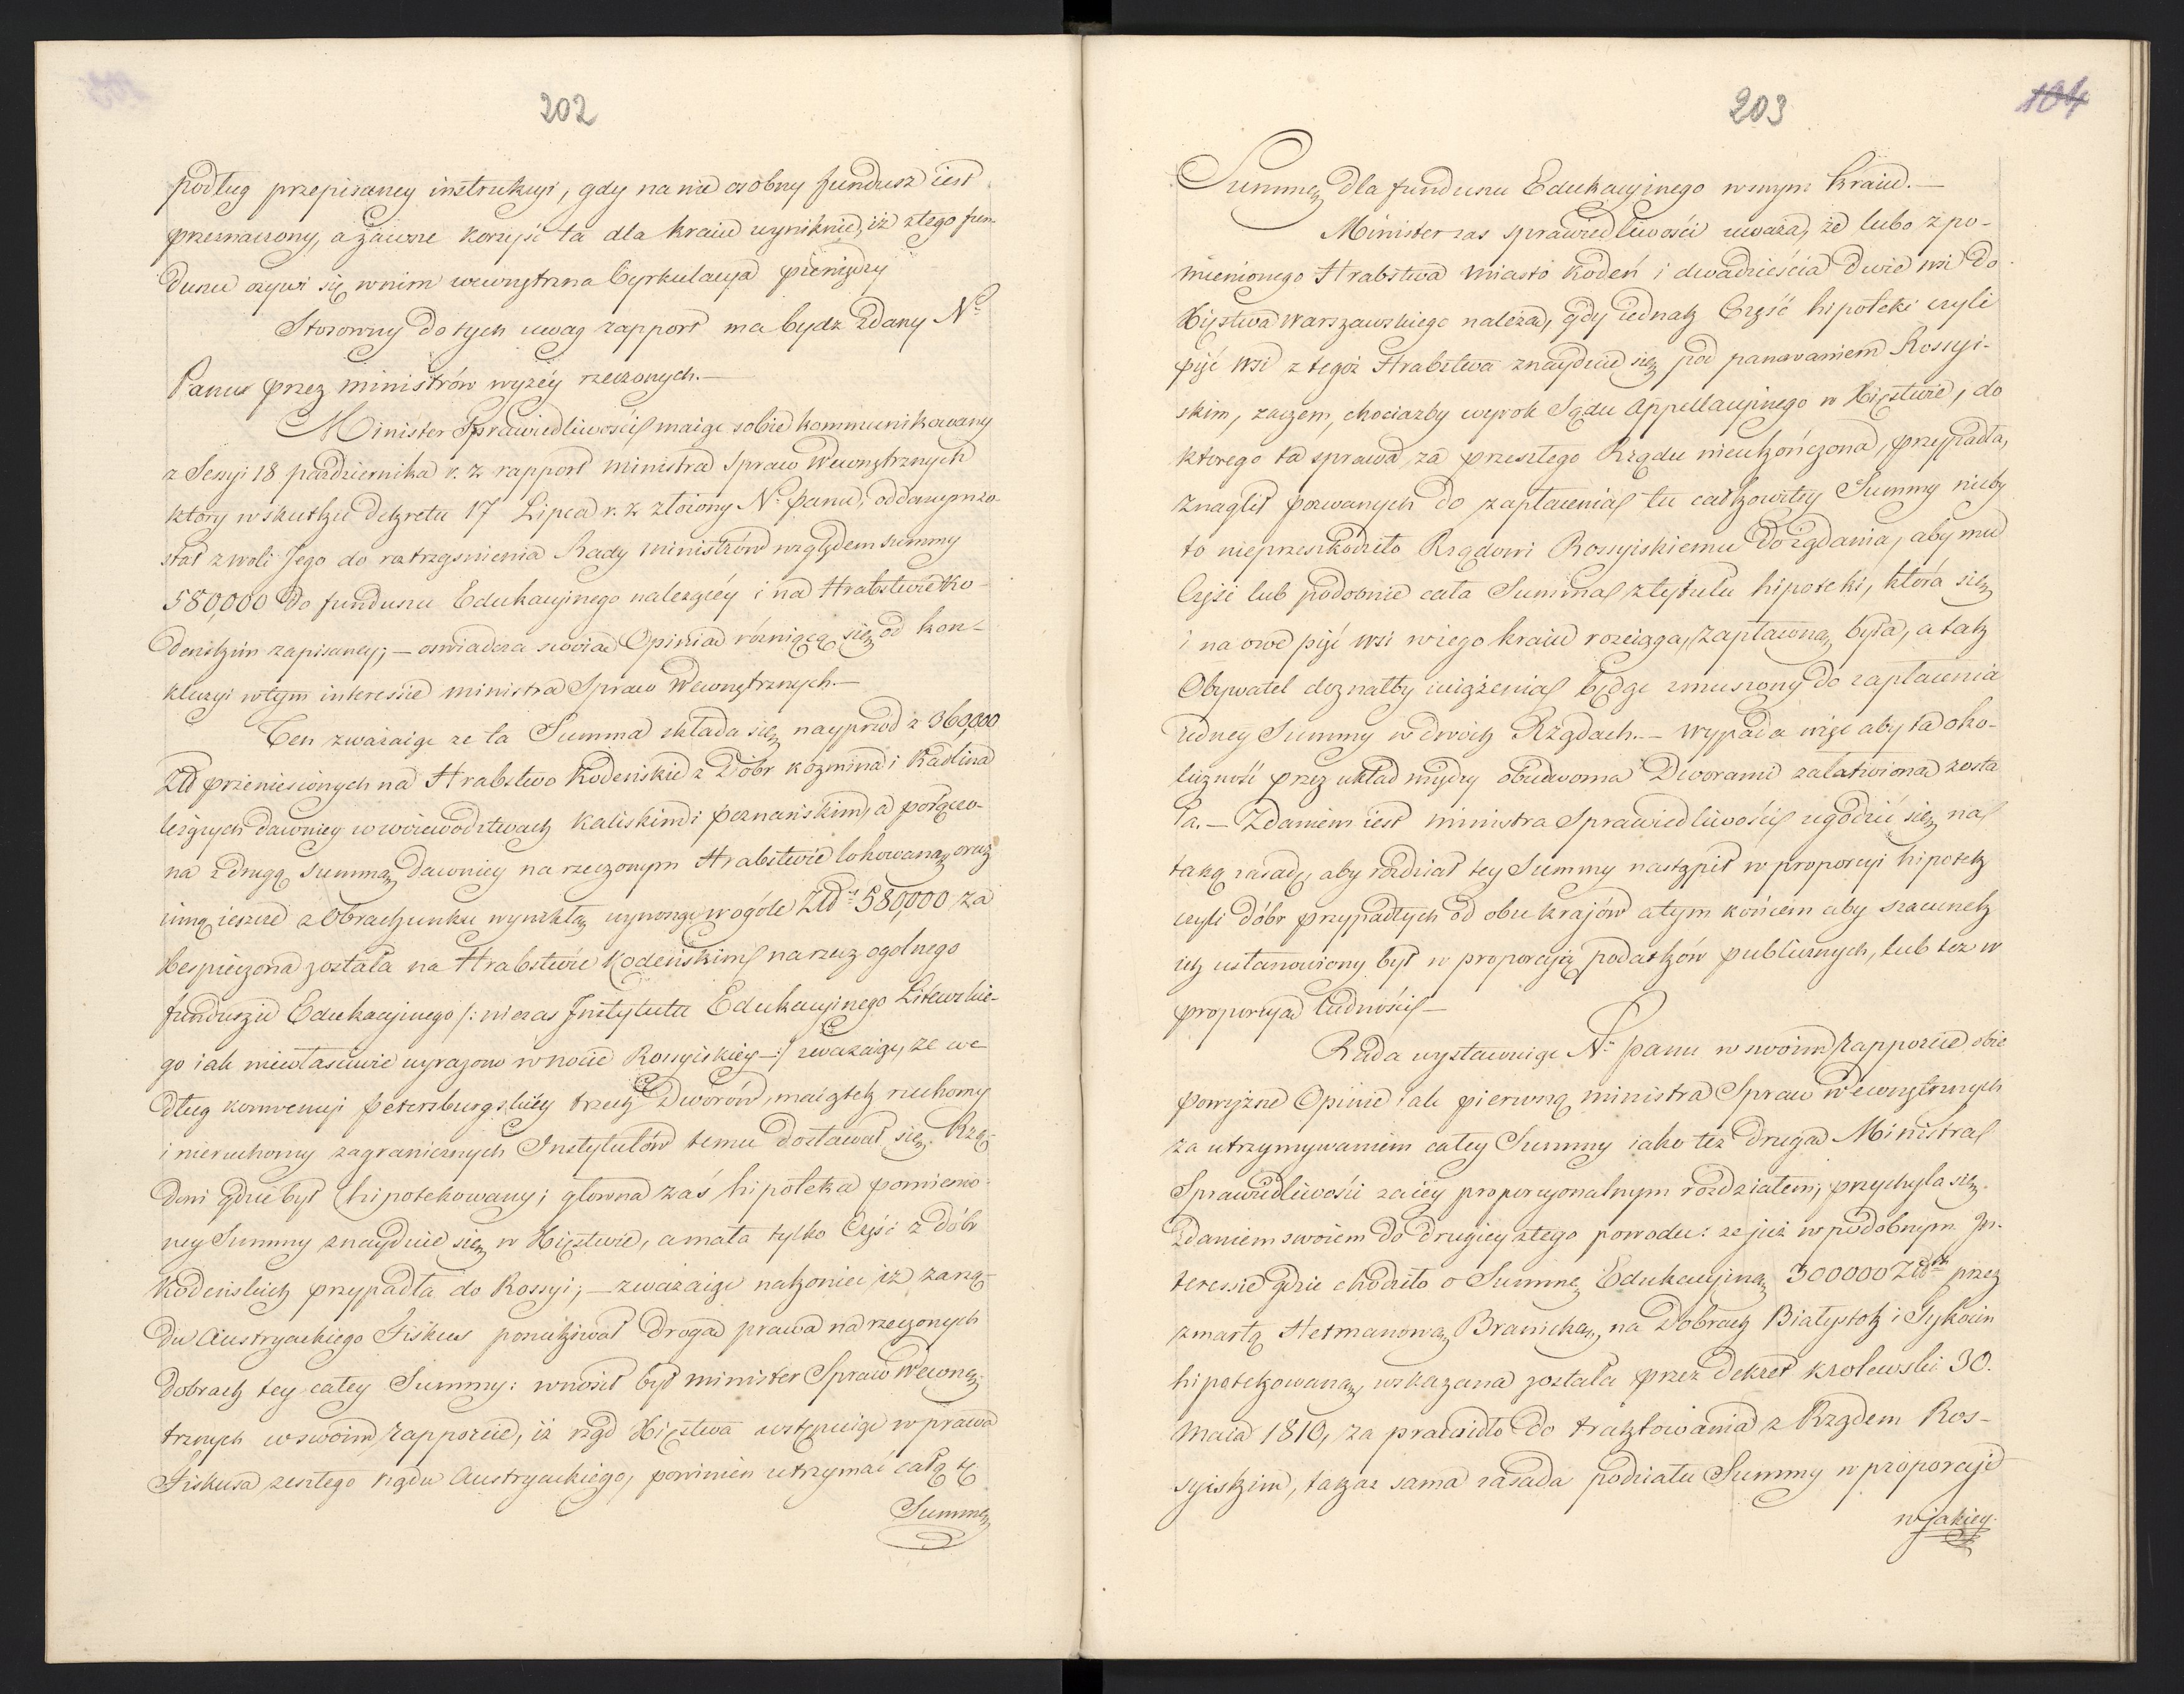 202
podług przepisaney instrukcyi, gdy na nie osobny fundusz iest
przeznaczony, a zawsze korzyść ta dla kraiu wyniknie, iż z tego fun-
duszu ożywi się w nim wewnętrzna Cyrkulacya pieniędzy
Stosowny do tych uwag rapport ma bydz zdany N.
Panu przez ministrów wyżéy rzeczonych.—
Minister Sprawiedliwości maiąc sobie kommunikowany
z Sessyi 18 października r. z rapport ministra Spraw Wewnętrznych
który w skutku dekretu 17 Lipca r. z złożony N. Panu, oddany zo-
stał z woli Jego do roztrząśnienia Rady Ministrów względem summy
580,000 do funduszu Edukacyinego należącéy i na Hrabstwie Ko-
deńskim zapisaney; — oswiadcza swoią Opinią różniącą się od kon-
kluzyi w tym interessie ministra Spraw Wewnętrznych.—
Ten zważaiąc ze ta Summa składa się nayprzód z 360,000
Złł przeniesionych na Hrabstwo Kodeńskie z Dóbr Kozmina i Radlina
leżących dawniey w woiewodztwach Kaliskim i Poznańskim, a połączo-
na z drugą summą dawniey na rzeczonym Hrabstwie lokowaną oraz
inną ieszcze z Obrachunku wynikłą wynosząc w ogóle Złł 580,000 za
bespieczona została na Hrabstwie Kodeńskim na rzecz ogolnego
funduszu Edukacyinego /: nie zas Jnstytutu Edukacyinego Litewskie-
go iak niewłaściwie wyrażono w nocie Rossyiskiey —:/ uważaiąc, ze we-
dług konwencyi petersburgskiéy trzech Dworów, maiątek ruchomy
i nieruchomy zagranicznych Instytutów temu dostawał się Rzą-
dowi gdzie był hipotekowany; głowna zaś hipoteka pomienio-
ney Summy znayduie się w Xięstwie, a mała tylko Część z dóbr
Kodeńskich przypadła do Rossyi; — zważaiąc nakoniec iż za rzą-
du Austryackiego Fiskus poszukiwał drogą prawa na rzeczonych
Dobrach tey całey Summy: wnosił był minister Spraw Wewnę-
trznych w swoim rapporcie, iż rząd Xięstwa wstępuiąc w prawa
Fiskusa zeszłego rządu Austryackiego, powinien utrzymać całą tę
Summę
203
104
Summę dla funduszu Edukacyinego w swym Kraiu.—
Minister zas sprawiedliwości uważa, że lubo z po-
mienionego Hrabstwa miasto Kodeń i dwadzieścia dwie wsi do
Xięstwa Warszawskiego należą, gdy iednak Część hipoteki czyli
pięć wsi z tegoż Hrabstwa znayduie się pod panowaniem Rossyi-
skim, zaczem, chociazby wyrok Sądu Appellacyinego w Xięstwie, do
ktorego ta sprawa za przeszłego Rządu nieukończona, przypadła,
znaglił pozwanych do zapłacenia tu całkowitey Summy nieby
to nieprzeszkodziło Rządowi Rossyiskiemu do żądania, aby mu
Części lub podobnie cała Summa z tytułu hipoteki, która się
i na owe pięć wsi w iego kraiu rozciąga, zapłacona, była, a tak
Obywatel doznałby uciążenia będąc zmuszony do zapłacenia
iedney Summy w dwóch Rządach.— Wypada więc aby ta oko-
liczność przez układ między obudwoma Dworami załatwiona zosta
ła.— Zdaniem iest ministra Sprawiedliwości ugodzić się na
taką zasadę, aby rozdział tey Summy nastąpił w proporcyi hipotek
czyli dóbr przypadłych od obu krajów a tym końcem aby szacunek
ich ustanowiony był w proporcyią podatków publicznych, lub też w
proporcyą ludności—
Rada wystawuiąc N. Panu w swoim rapporcie obie
powyższe Opinie iak pierwszą ministra Spraw Wewnętrznych
za utrzymywaniem całey Summy iako też drugą Ministra
Sprawiedliwości za iéy proporcyonalnym rozdziałem, przychyla się
zdaniem swoiem do drugiey z tego powodu: ze już w podobnym In-
teressie gdzie chodziło o Summę Edukacyiną 300000 Złł przez
zmarłą Hetmanową Branicką, na Dobrach Białystok i Tykocin
hipotekowaną, wskazana została przez Dekret krolewski 30.
Maia 1810, za prawidło do traktowania z Rządem Ros-
syiskim, takaz sama zasada podziału Summy w proporcyi
w jakiey